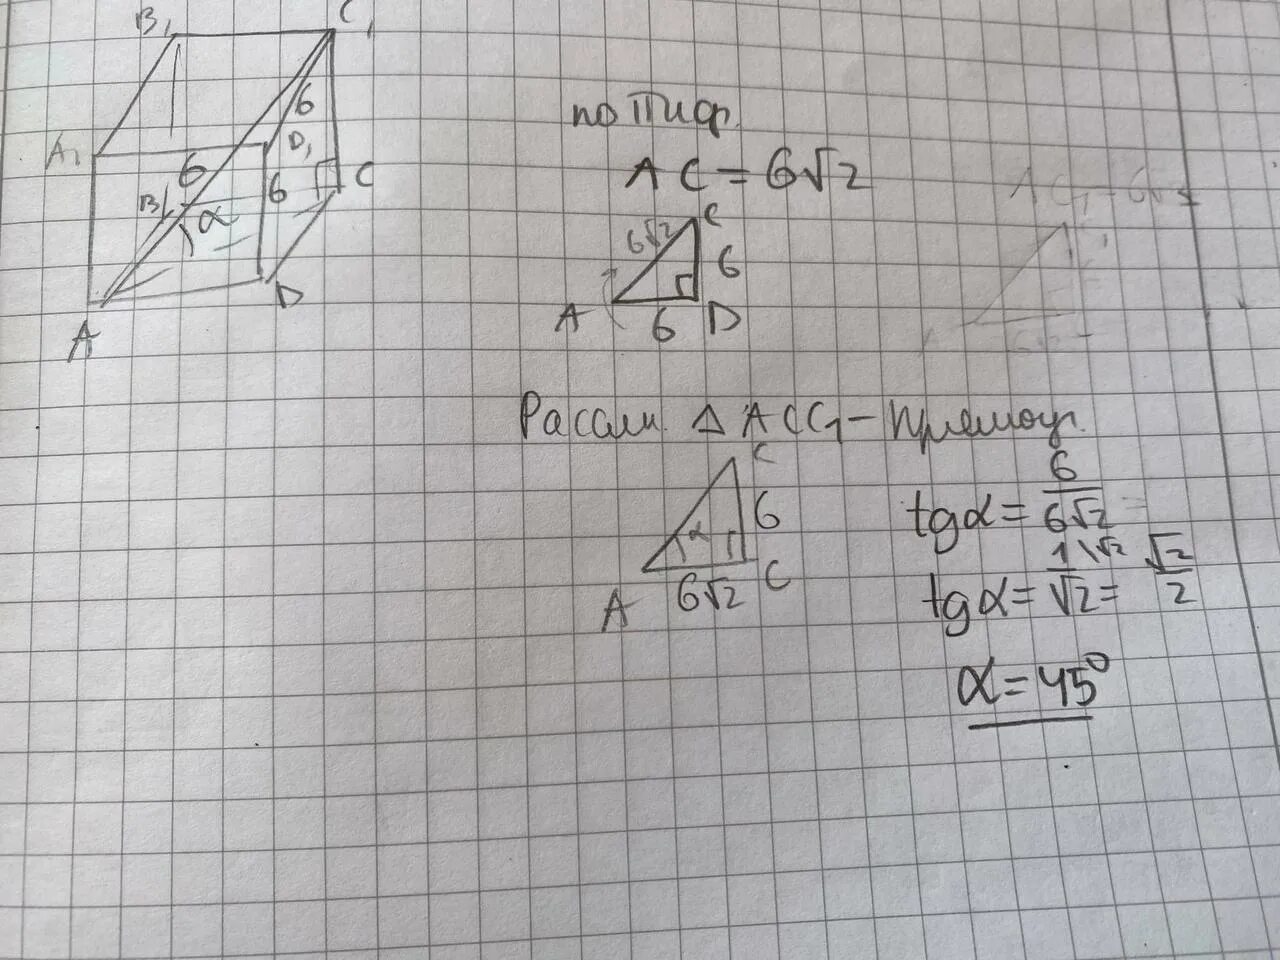 B₁ C₁
6
A₁ D₁
6 C
B 6
α
D
A
по Пиф.
AC = 6√2
C
6√2
6
A 6 D
Рассм. △ ACC₁ - прямоуг.
C
6
α
A 6√2 C
tgα = 6/6√2 =
tgα = 1\√2/√2 = √2/2
α = 45°